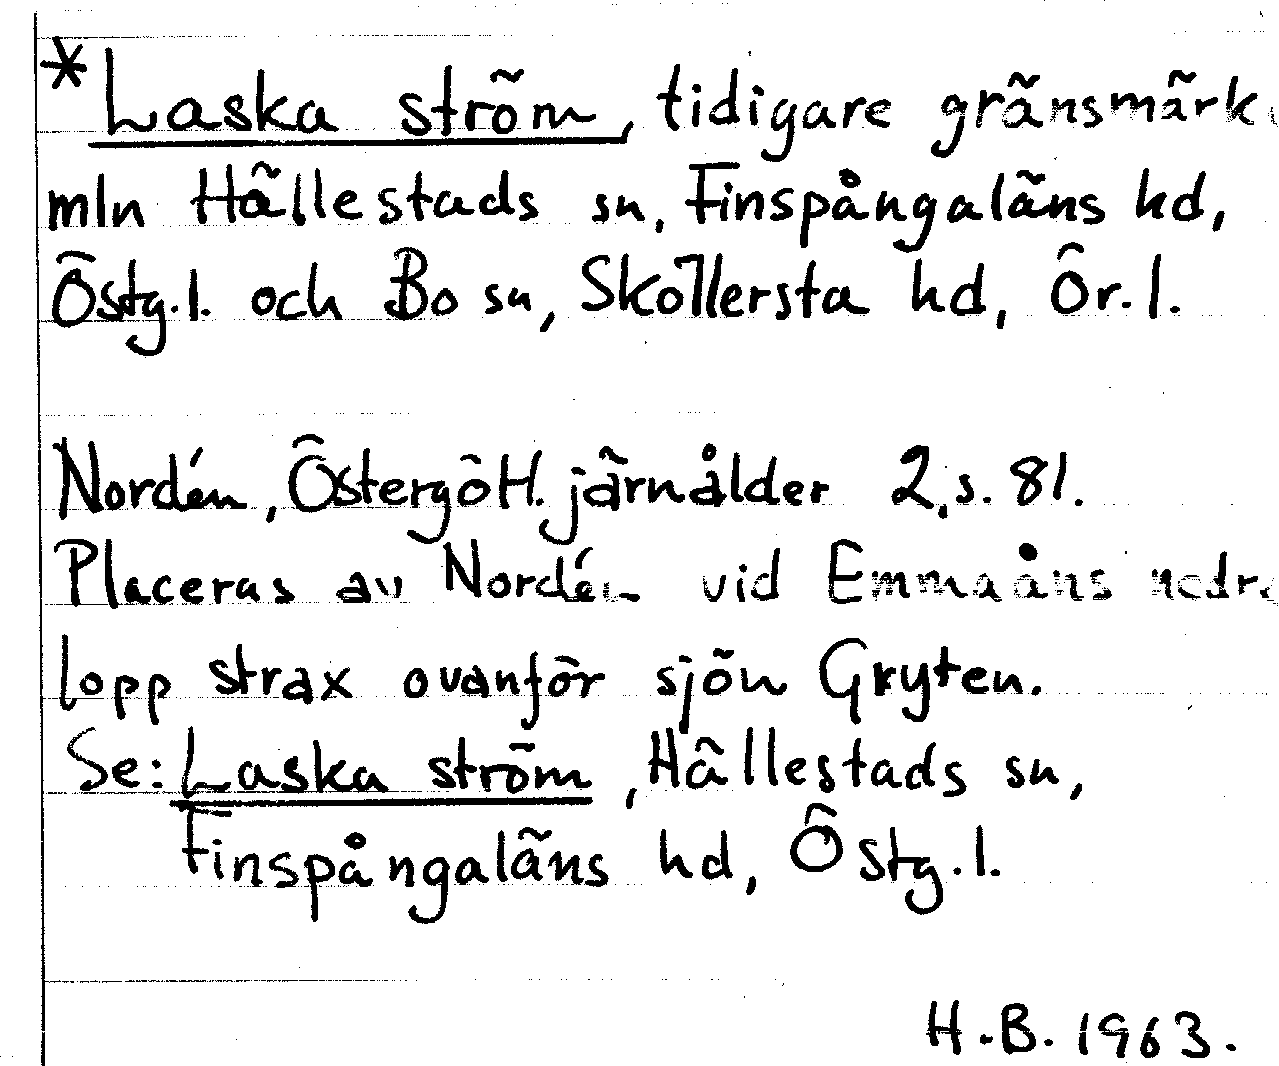 *Laska ström, tidigare gränsmärke
mln Hällestads sn, Finspångaläns hd,
Östg.l. och Bo sn, Sköllersta hd, Ör.l.
Nordén, Östergötl. järnålder 2, s. 81.
Placeras av Nordén vid Emmaåns nedre
lopp strax ovanför sjön Gryten.
Se: Laska ström, Hällestads sn,
Finspångaläns hd, Östg.l.
H.B. 1963.